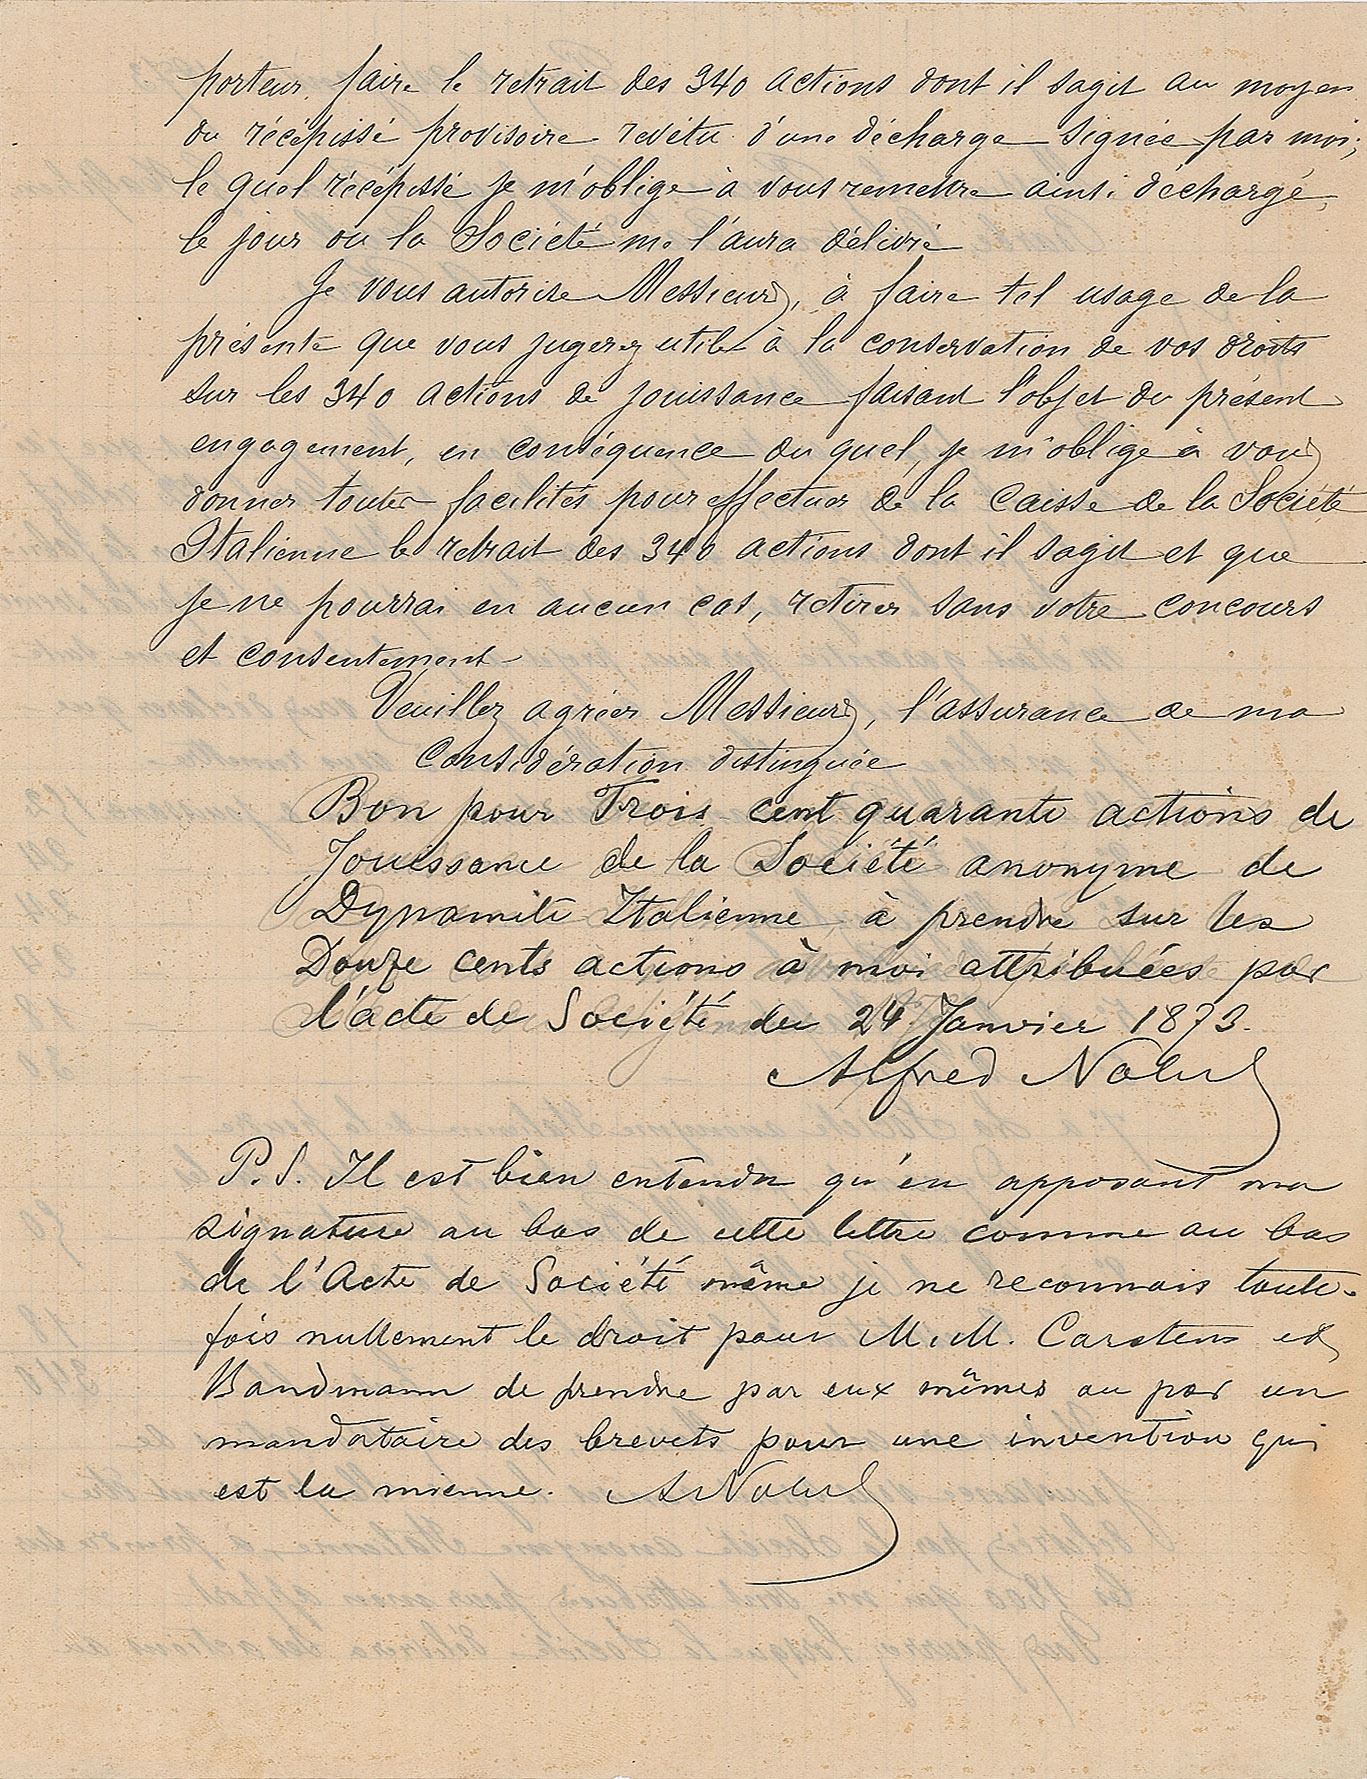 porteur faire le retrait des 340 actions dont il sagit au moyen
du récépissé provisoire revétu d'une décharge signée par moi;
le quel récépissé je m'oblige à vous remettre ainsi déchargé,
le jour où la Société me l'aura délivré
Je vous autorise Messieurs, à faire tel usage de la
présente que vous jugerez utile à la conservation de vos droits
sur les 340 actions de jouissance faisant l'objet du présent
engagement, en conséquence du quel, je m'oblige à vous
donner toutes facilités pour effectuer de la Caisse de la Société
Italienne le retrait des 340 actions dont il sagit et que
je ne pourrai en aucun cas, retirer sans votre concours
et consentement
Veuillez agréer Messieurs, l'assurance de ma
Considération distinguée
Bon pour Trois cent quarante actions de
Jouissance de la Société anonyme de
Dynamite Italienne, à prendre sur les
Douze cents actions à moi attribuées par
l'acte de Société du 24 Janvier 1873.
Alfred Nobel
P.S. Il est bien entendu qu'en apposant ma
signature au bas de cette lettre comme au bas
de l'Acte de Société même je ne reconnais toute-
fois nullement le droit pour M.M. Carstens et
Bandmann de prendre par eux mêmes ou par un
mandataire des brevets pour une invention qui
est la mienne. A Nobel